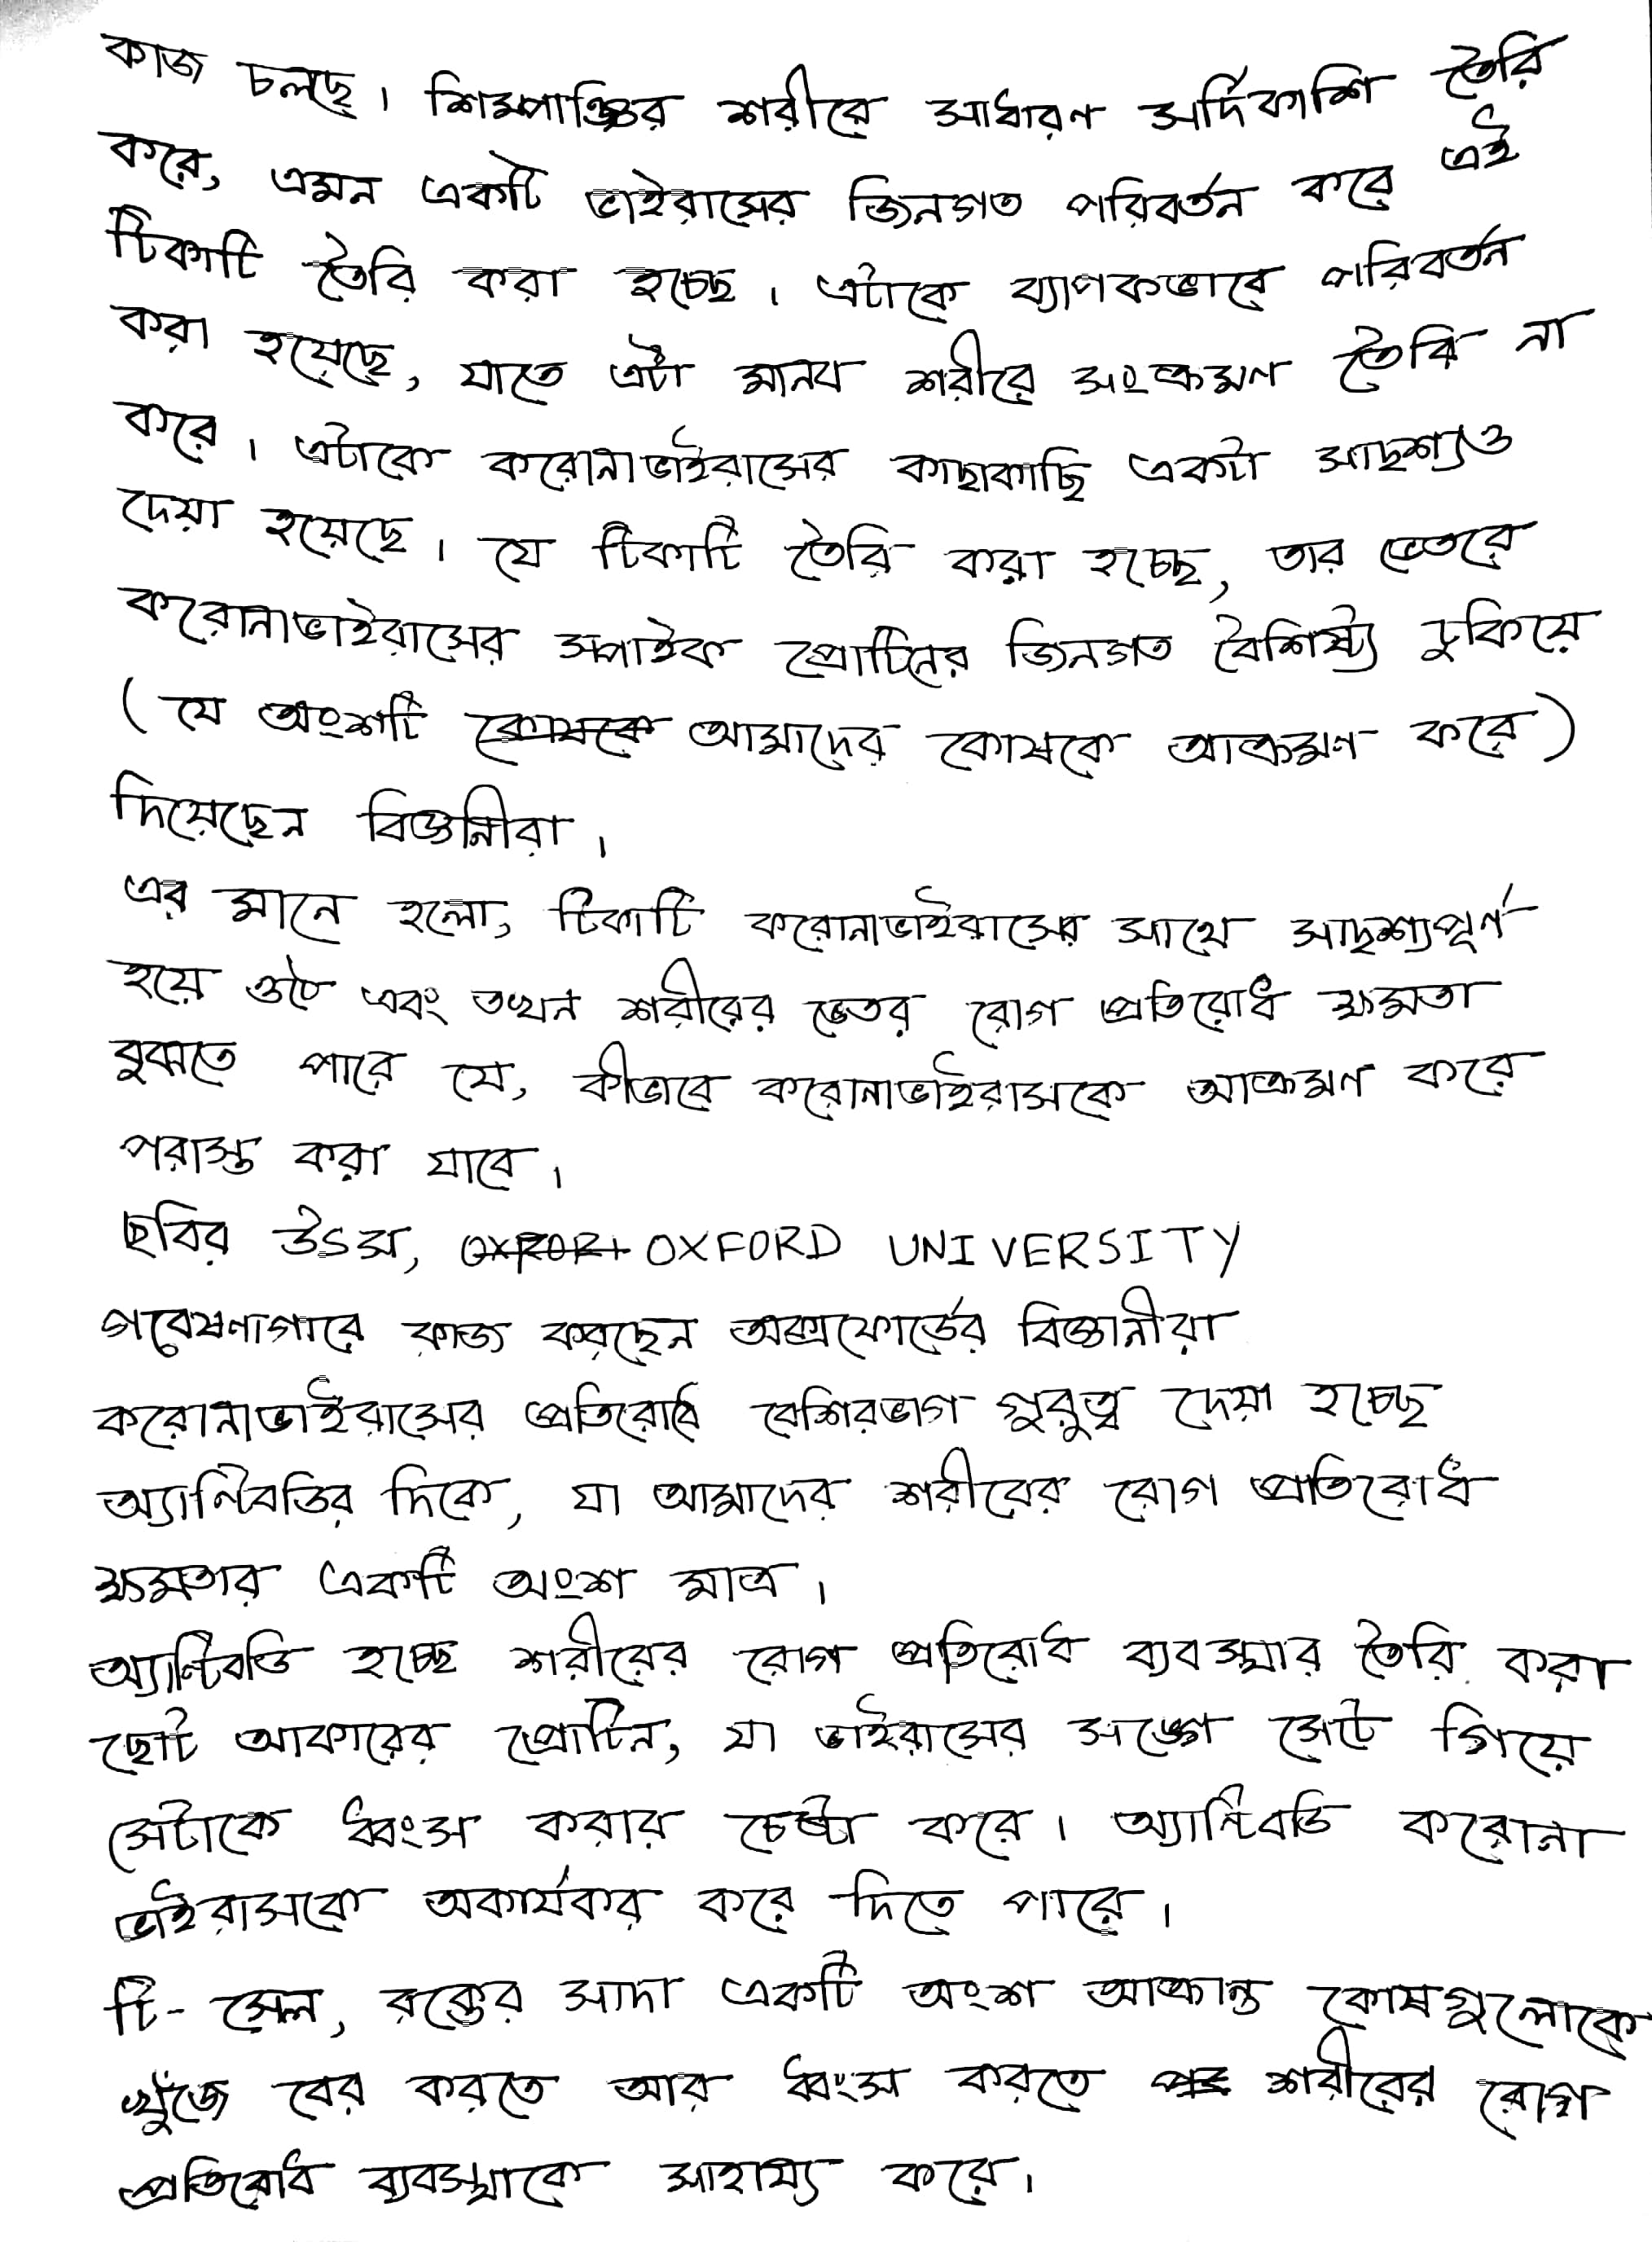 কাজ চলছে। শিম্পাঞ্জির শরীরে সাধারণ সর্দিকাশি তৈরি
করে, এমন একটি ভাইরাসের জিনগত পরিবর্তন করে এই
টিকাটি তৈরি করা হচ্ছে। এটাকে ব্যাপকভাবে পরিবর্তন
করা হয়েছে, যাতে এটা মানব শরীরে সংক্রমণ তৈরি না
করে। এটাকে করোনাভাইরাসের কাছাকাছি একটা সাদৃশ্যও
দেয়া হয়েছে। যে টিকাটি তৈরি করা হচ্ছে, তার ভেতরে
করোনাভাইরাসের স্পাইক প্রোটিনের জিনগত বৈশিষ্ট্য ঢুকিয়ে
(যে অংশটি আমাদের কোষকে আক্রমণ করে)
দিয়েছেন বিজ্ঞানীরা।
এর মানে হলো, টিকাটি করোনাভাইরাসের সাথে সাদৃশ্যপূর্ণ
হয়ে ওঠে এবং তখন শরীরের ভেতর রোগ প্রতিরোধ ক্ষমতা
বুঝতে পারে যে, কীভাবে করোনাভাইরাসকে আক্রমণ করে
পরাস্ত করা যাবে।
ছবির উৎস, OXFORD UNIVERSITY
গবেষণাগারে কাজ করছেন অক্সফোর্ডের বিজ্ঞানীরা
করোনাভাইরাসের প্রতিরোধে বেশিরভাগ গুরুত্ব দেয়া হচ্ছে
অ্যান্টিবডির দিকে, যা আমাদের শরীরের রোগ প্রতিরোধ
ক্ষমতার একটি অংশ মাত্র।
অ্যান্টিবডি হচ্ছে শরীরের রোগ প্রতিরোধ ব্যবস্থার তৈরি করা
ছোট আকারের প্রোটিন, যা ভাইরাসের সঙ্গে সেটে গিয়ে
সেটাকে ধ্বংস করার চেষ্টা করে। অ্যান্টিবডি করোনা
ভাইরাসকে অকার্যকর করে দিতে পারে।
টি-সেল, রক্তের সাদা একটি অংশ আক্রান্ত কোষগুলোকে
খুঁজে বের করতে আর ধ্বংস করতে শরীরের রোগ
প্রতিরোধ ব্যবস্থাকে সাহায্য করে।